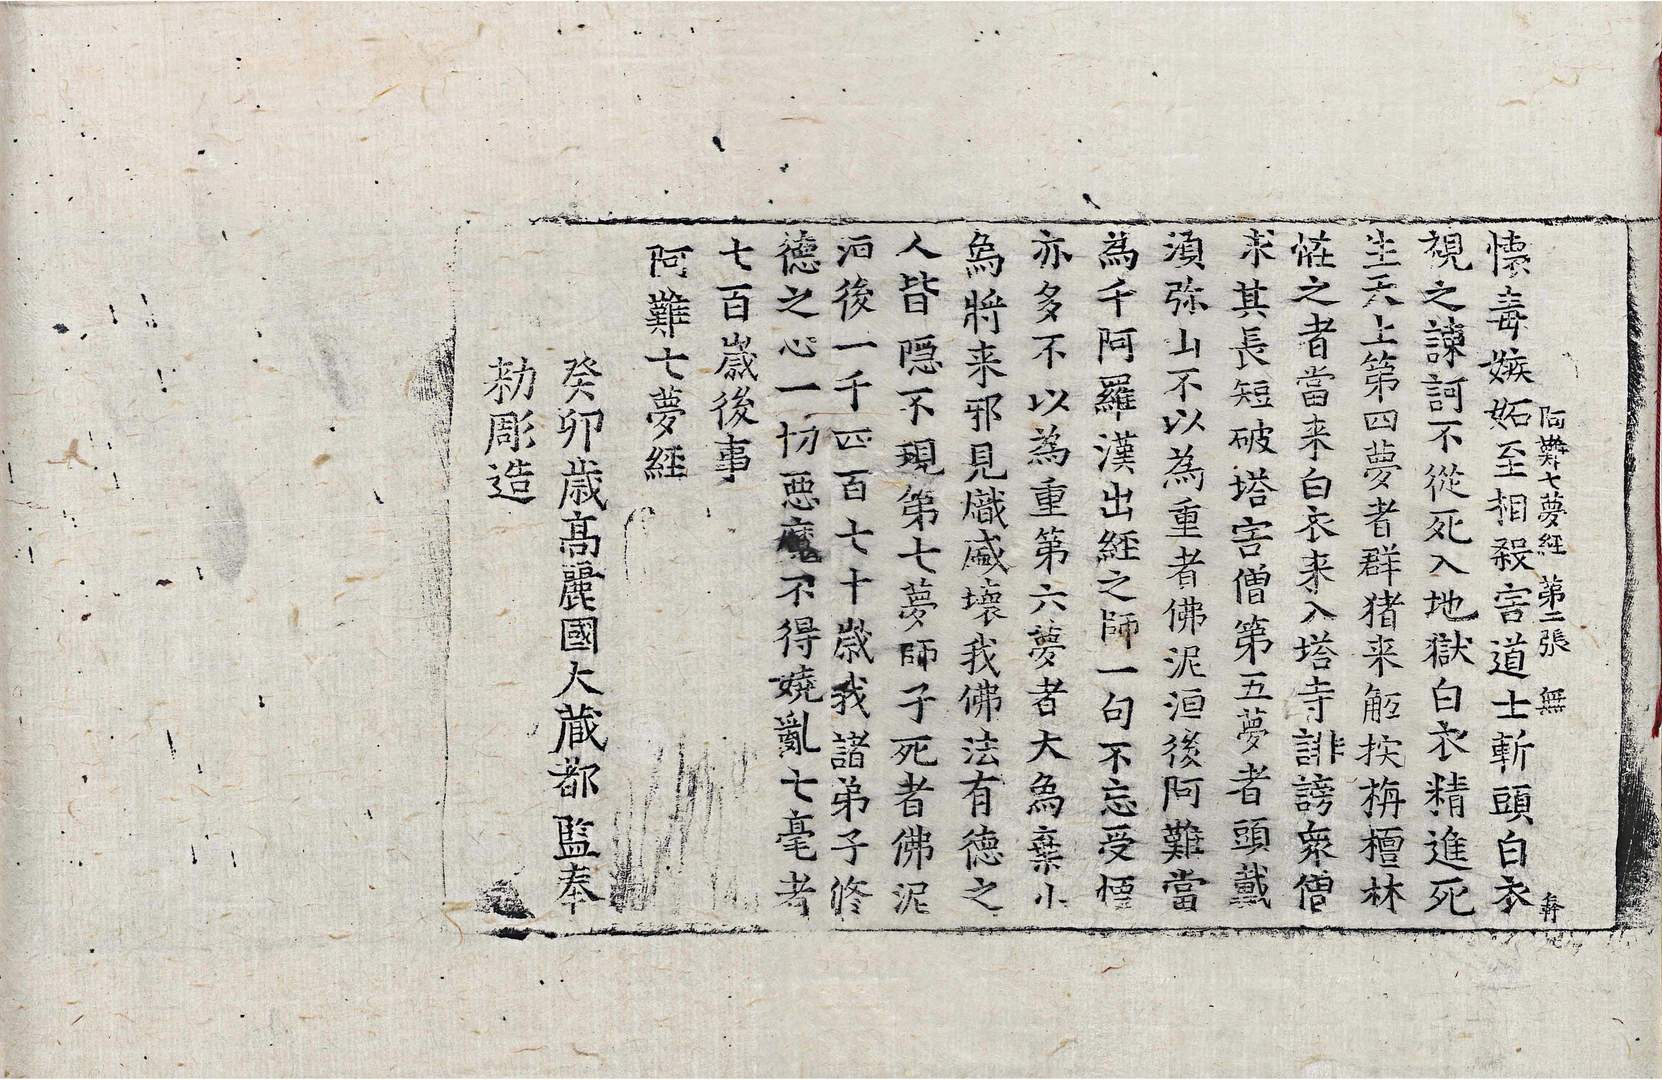 阿難七夢経 第二張 無
懐毒嫉妬至相殺害道士斬頭白衣
視之諫訶不從死入地獄白衣精進死
生天上第四夢者群猪来觝揬栴檀林
恠之者當来白衣来入塔寺誹謗衆僧
求其長短破塔害僧第五夢者頭戴
須弥山不以為重者佛泥洹後阿難當
為千阿羅漢出経之師一句不忘受悟
亦多不以為重第六夢者大為棄小
為將来邪見熾盛壞我佛法有德之
人皆隱不現第七夢師子死者佛泥
洹後一千四百七十歲我諸弟子修
德之心一切惡魔不得嬈亂七毫者
七百歲後事
阿難七夢経
癸卯歳高麗國大蔵都監奉
勅彫造